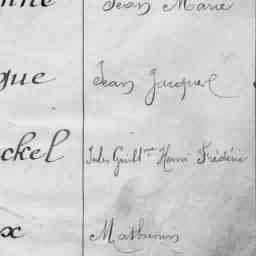 nne Jean Marie
que Jean Jacques
ckel Jules Guill^me Henri Frédéric
x Mathurin